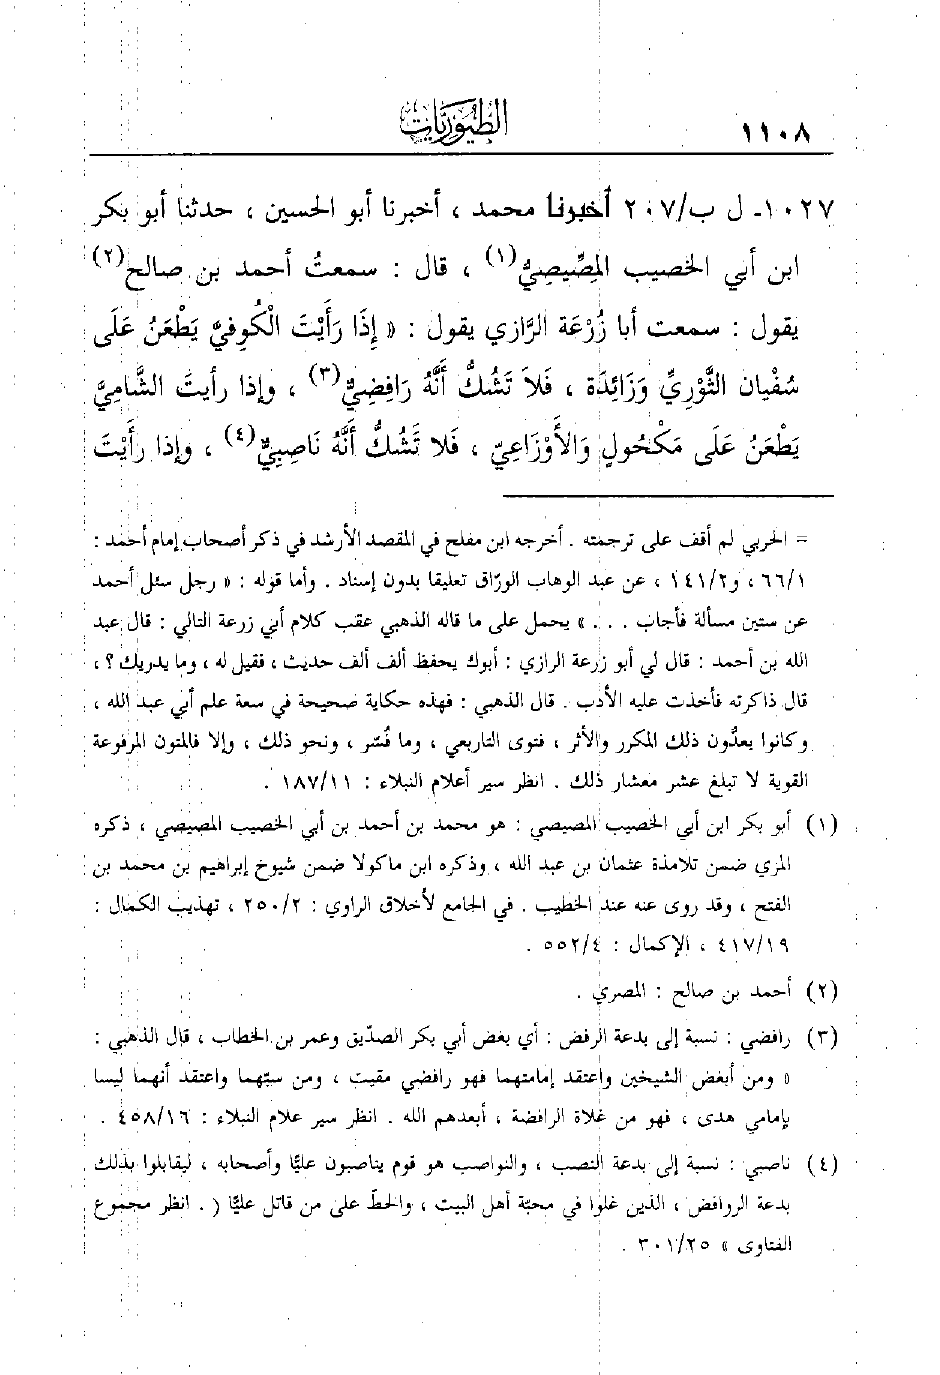 ١١٠٨
الطيوريات
١٠٢٧- ل ب/٢٠٧ أخبرنا محمد ، أخبرنا أبو الحسين ، حدثنا أبو بكر
ابن أبي الخصيب المِصِّيصِيُّ(١) ، قال : سمعتُ أحمد بن صالح(٢)
يقول : سمعت أبا زُرْعَة الرَّازي يقول : « إِذَا رَأَيْتَ الْكُوفِيَّ يَطْعَنُ عَلَى
سُفْيان الثَّوْرِيِّ وَزَائِدَة ، فَلاَ تَشُكَّ أَنَّهُ رَافِضِيٌّ(٣) ، وإذا رأيتَ الشَّامِيَّ
يَطْعَنُ عَلَى مَكْحُولٍ وَالأَوْزَاعِيّ ، فَلا تَشُكُّ أَنَّهُ نَاصِبِيٌّ(٤) ، وإذا رأَيْتَ
= الحربي لم أقف على ترجمته . أخرجه ابن مفلح في المقصد الأرشد في ذكر أصحاب إمام أحمد :
٦٦/١ ، و١٤١/٢ ، عن عبد الوهاب الورّاق تعليقا بدون إسناد . وأما قوله : « رجل سئل أحمد
عن ستين مسألة فأجاب . . . » يحمل على ما قاله الذهبي عقب كلام أبي زرعة التالي : قال عبد
الله بن أحمد : قال لي أبو زرعة الرازي : أبوك يحفظ ألف ألف حديث ، فقيل له ، وما يدريك ؟ ،
قال ذاكرته فأخذت عليه الأدب . قال الذهبي : فهذه حكاية صحيحة في سعة علم أبي عبد الله ،
وكانوا يعدُّون ذلك المكرر والأثر ، فتوى التاربعي ، وما فُسّر ، ونحو ذلك ، وإلا فالمتون المرفوعة
القوية لا تبلغ عشر معشار ذلك . انظر سير أعلام النبلاء : ١٨٧/١١ .
(١) أبو بكر ابن أبي الخصيب المصيصي : هو محمد بن أحمد بن أبي الخصيب المصيصي ، ذكره
المزي ضمن تلامذة عثمان بن عبد الله ، وذكره ابن ماكولا ضمن شيوخ إبراهيم بن محمد بن
الفتح ، وقد روى عنه عند الخطيب . في الجامع لأخلاق الراوي : ٢٥٠/٢ ، تهذيب الكمال :
٤١٧/١٩ ، الإكمال : ٥٥٢/٤ .
(٢) أحمد بن صالح : المصري .
(٣) رافضي : نسبة إلى بدعة الرفض : أي بغض أبي بكر الصدّيق وعمر بن الخطاب ، قال الذهبي :
« ومن أبغض الشيخين واعتقد إمامتهما فهو رافضي مقيت ، ومن سبّهما واعتقد أنهما ليسا
بإمامي هدى ، فهو من غلاة الرافضة ، أبعدهم الله . انظر سير علام النبلاء : ٤٥٨/١٦ .
(٤) ناصبي : نسبة إلى بدعة النصب ، والنواصب هو قوم يناصبون عليًّا وأصحابه ، ليقابلوا بذلك
بدعة الروافض ، الذين غلوا في محبّة أهل البيت ، والحطّ على من قاتل عليًّا ( . انظر مجموع
الفتاوى » ٣٠١/٢٥ .